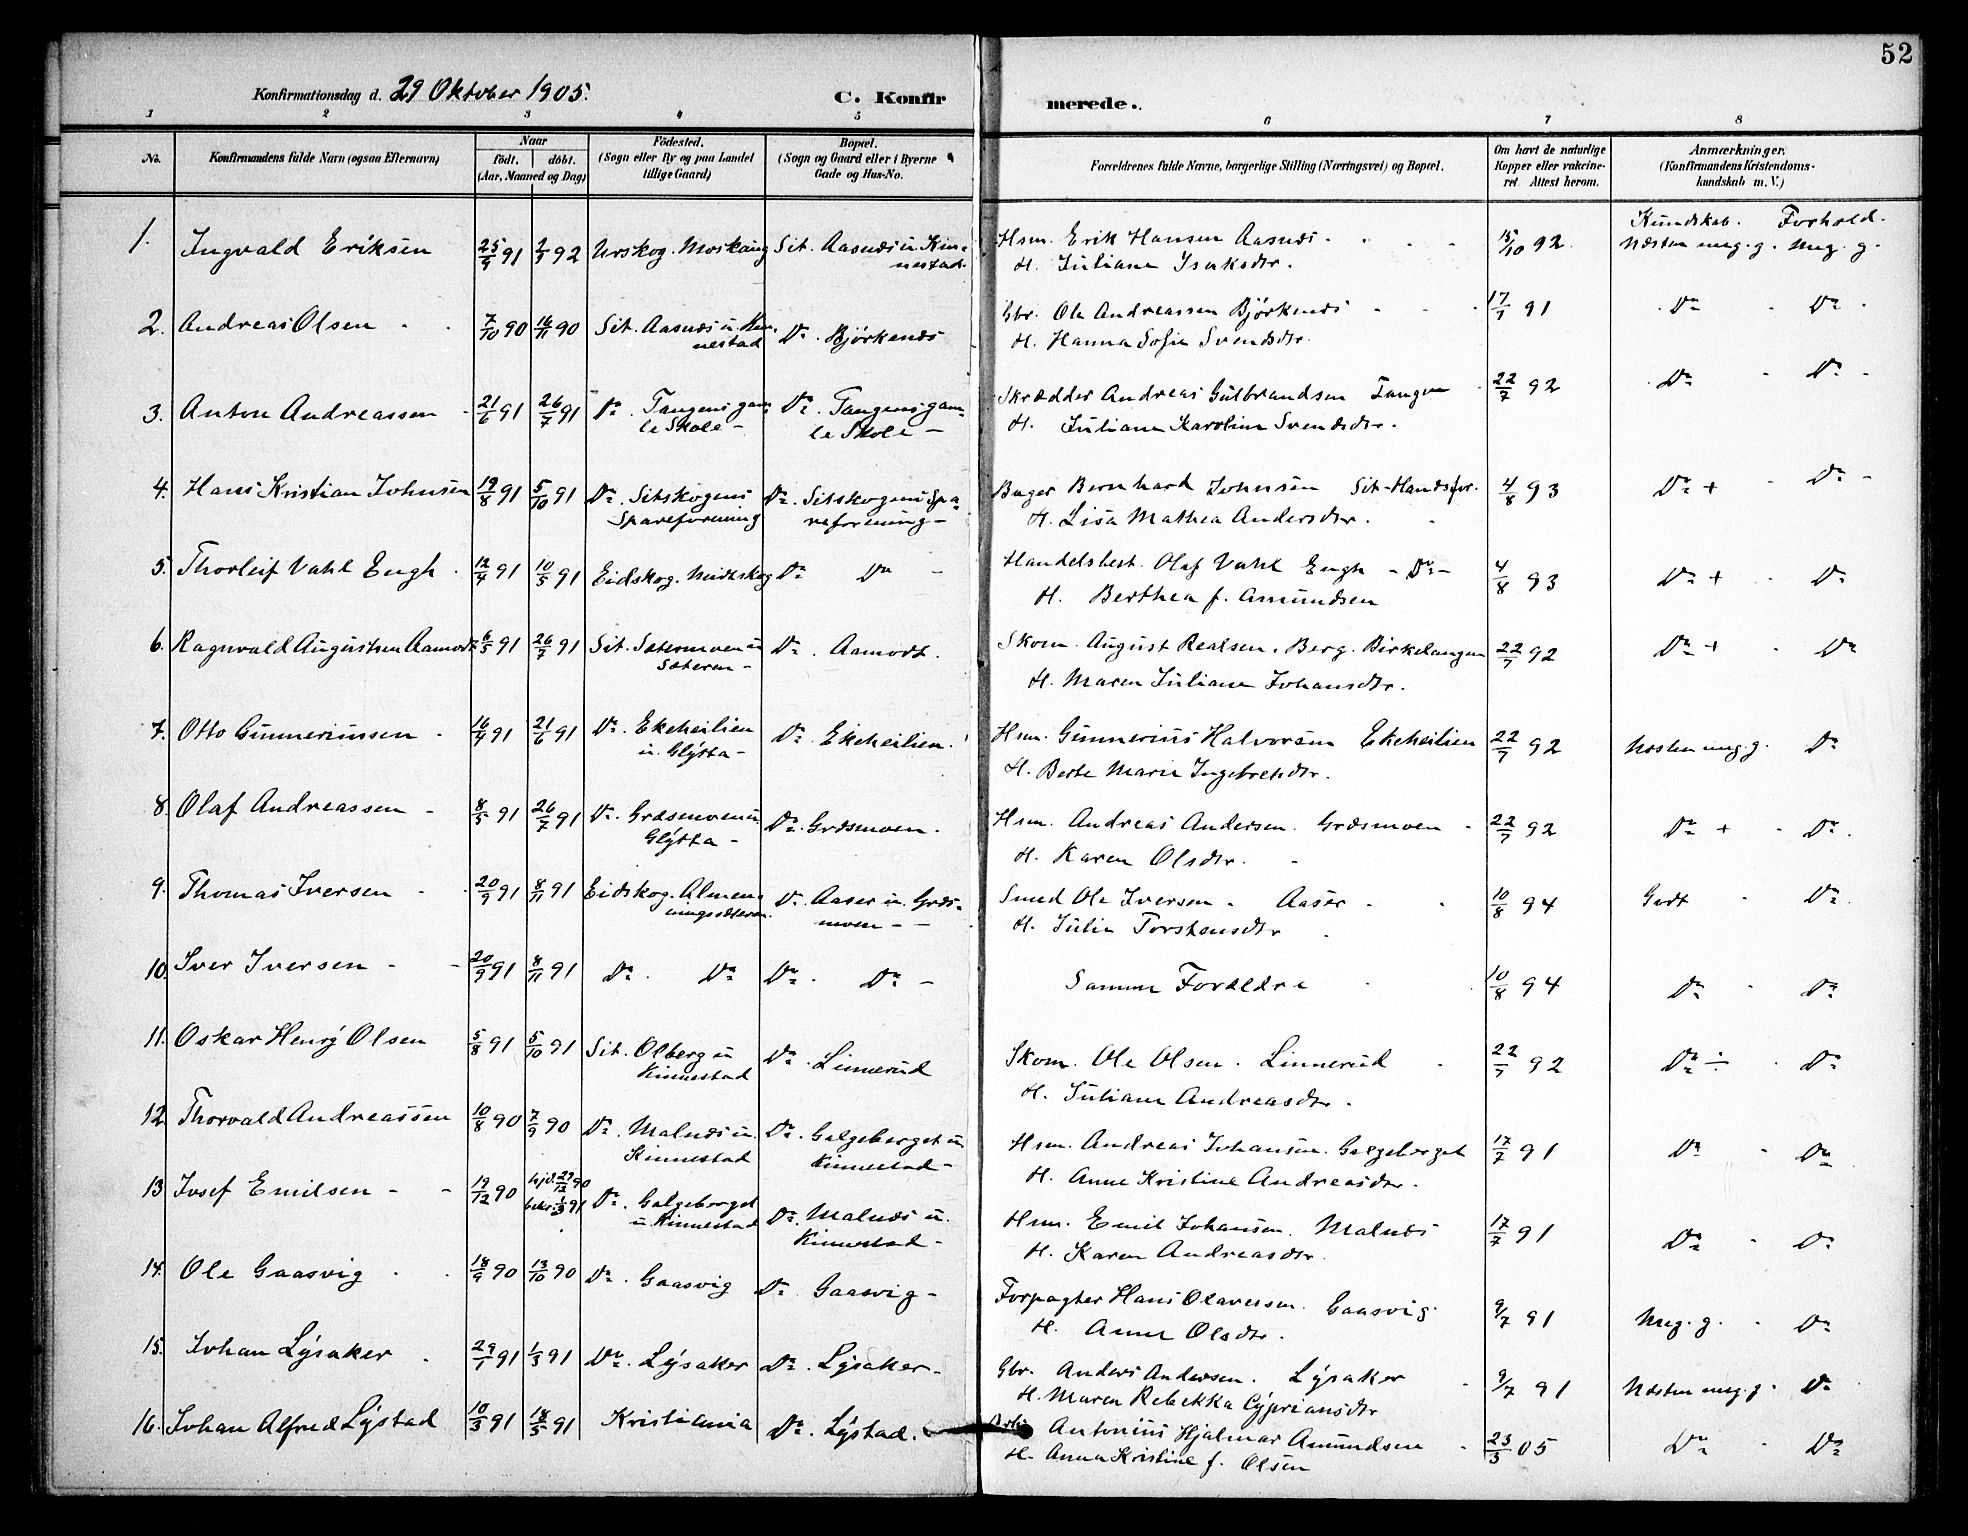 52
Konfirmationsdag d. 29 Oktober 1905.
C. Konfir
merede.
1 2 3 4 5 6 7 8
No.
Konfirmandens fulde Navn (ogsaa Efternavn)
Naar
födt. döbt.
(Aar, Maaned og Dag)
Födested.
(Sogn eller By og paa Landet
tillige Gaard)
Bopæl.
(Sogn og Gaard eller i Byerne
Gade og Hus-No.
Forældrenes fulde Navne, borgerlige Stilling (Næringsvei) og Bopæl.
Om havt de naturlige
Kopper eller vakcine-
ret. Attest herom.
Anmærkninger.
(Konfirmandens Kristendoms-
kundskab m. V.)
Kundskab. Forhold.
1. Ingvald Eriksen 25/9 91 2/1 92 Urskog. Moskaug Sit. Aasnæs u. Kin-
nestad.
Hsm. Erik Hansen Aasnæs 15/10 92 Næsten meg. g. Meg. g.
H. Juliane Isaksdtr.
2. Andreas Olsen 7/10 90 16/11 90 Sit. Aasnæs u. Kin-
nestad
Do. Björkenæs
Gbr. Ole Andreassen Björkenæs 17/7 91 Do Do
H. Hanna Sofie Svendsdtr.
3. Anton Andreassen 21/6 91 26/7 91 Do. Tangens gam-
le Skole
Do. Tangens gam-
le Skole
Skrædder Andreas Gulbrandsen Tangen 22/7 92 Do Do
H. Juliane Karoline Svendsdtr.
4. Hans Kristian Johnsen 19/8 91 5/10 91 Do. Sitskogens
Spareforening
Do. Sitskogens Spa-
reforening
Bager Bernhard Johnsen Sit-Handsfor. 4/8 93 Do + Do
H. Lisa Mathea Andersdtr.
5. Thorleif Vahl Engh 12/4 91 10/5 91 Eidskog. Midtskog Do Do
Handelsbest. Olaf Vahl Engh - Do - 4/8 93 Do + Do
H. Berthea f. Amundsen
6. Ragnvald Augustsen Aamodt 6/5 91 26/7 91 Sit. Sætermoen u
Sæteren
Do. Aamodt.
Skom. August Realsen. Berg. Birkelangen 22/7 92 Do + Do
H. Maren Juliane Johansdtr.
7. Otto Gunneriussen 16/4 91 21/6 91 Do. Ekeheilien
u. Glýtta
Do. Ekeheilien.
Hsm. Gunnerius Halvorsen Ekeheilien 22/7 92 Næsten meg. g. Do
H. Berte Marie Ingebretsdtr.
8. Olaf Andreassen 8/5 91 26/7 91 Do. Græsmoen u.
Glýtta
Do. Græsmoen.
Hsm. Andreas Andersen. Græsmoen 22/7 92 Do + Do.
H. Karen Olsdtr.
9. Thomas Iversen 20/9 91 8/11 91 Eidskog. Almen-
ningssæteren
Do. Aaser u. Græs-
moen
Smed Ole Iversen Aaser 10/8 94 Godt Do.
H. Julie Torstensdtr
10. Iver Iversen 20/9 91 8/11 91 Do. Do Do. Do
Samme Forældre 10/8 94 Do Do
11. Oskar Henrý Olsen 5/8 91 5/10 91 Sit. Olberg u
Kinnestad
Do. Linnerud
Skom. Ole Olsen. Linnerud 22/7 92 Do ÷ Do
H. Juliane Andreasdtr.
12. Thorvald Andreassen 10/8 90 7/9 90 Do. Malnæs u.
Kinnestad
Do. Galgeberget u.
Kinnestad
Hsm. Andreas Johansen. Galgeberget 17/7 91 Do Do
H. Anne Kristine Andreasdtr.
13. Josef Emilsen 19/12 90 hjd. 29/12 90
bekr. 1/3 91
Do. Galgeberget
u. Kinnestad
Do. Malnæs u.
Kinnestad
Hsm. Emil Johansen. Malnæs 17/7 91 Do Do
H. Karen Andreasdtr.
14. Ole Gaasvig 18/9 90 13/10 90 Do. Gaasvig Do. Gaasvig
Forpagter Hans Olavessen. Gaasvig. 9/7 91 Meg. g. Do
H. Anne Olsdtr.
15. Johan Lýsaker 29/1 91 1/3 91 Do. Lýsaker Do. Lýsaker
Gbr. Anders Andersen. Lýsaker 9/7 91 Næsten meg. g. Do
H. Maren Rebekka Cýpriansdtr
16. Johan Alfred Lýstad 10/3 91 18/5 91 Kristiania Do. Lýstad.
Antonius Hjalmar Amundsen 23/3 05 Do Do
H. Anna Kristine f. Olsen